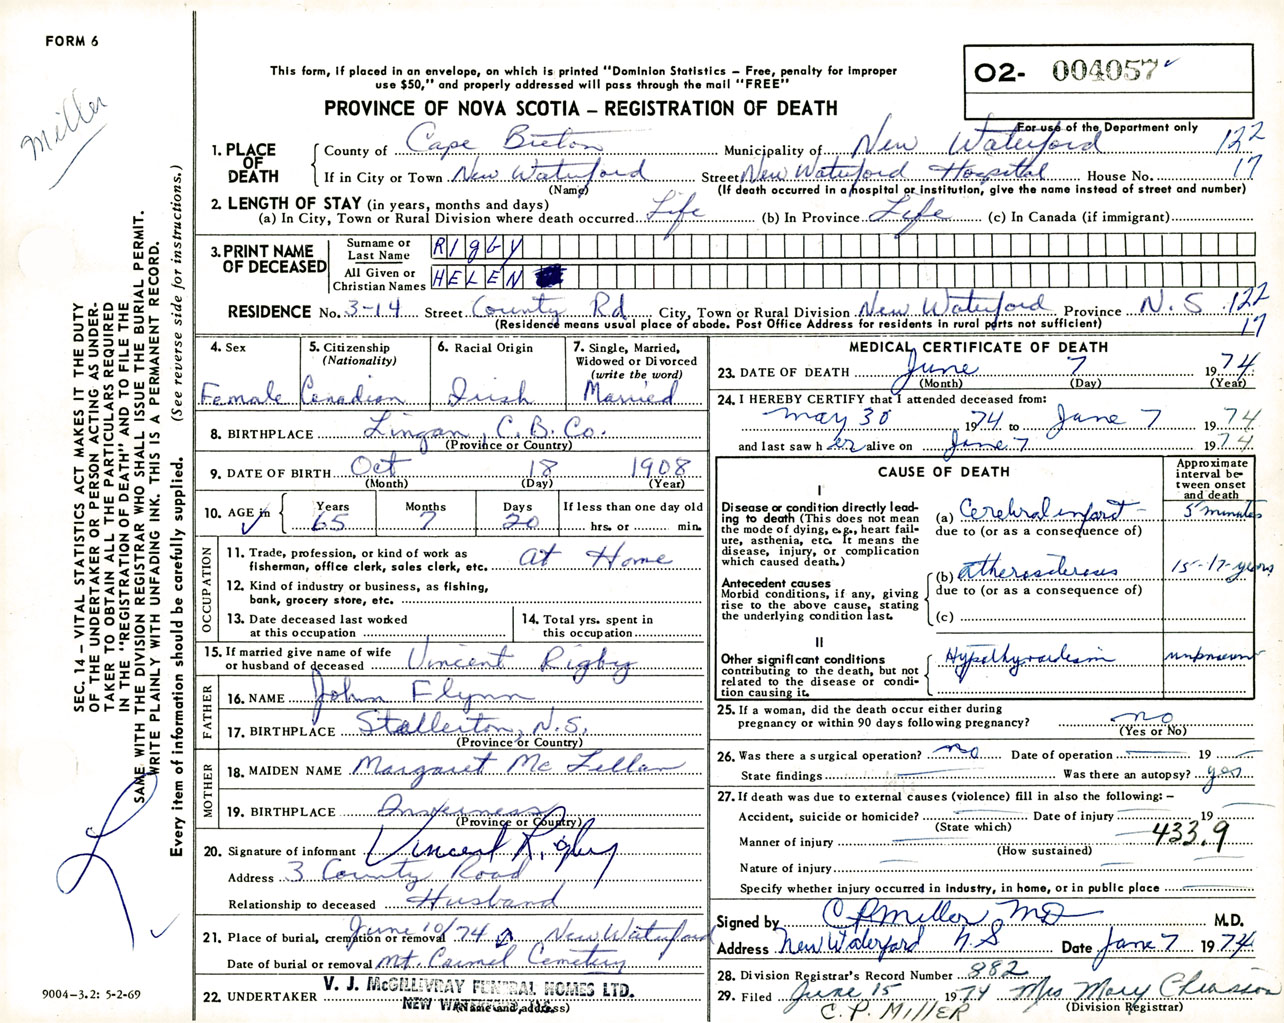 FORM 6
Miller
This form, if placed in an envelope, on which is printed "Dominion Statistics – Free, penalty for improper
use $50," and properly addressed will pass through the mail "FREE"
PROVINCE OF NOVA SCOTIA – REGISTRATION OF DEATH
O2- 004057
For use of the Department only
1. PLACE OF DEATH County of Cape Breton Municipality of New Waterford 122
If in City or Town New Waterford Street New Waterford Hospital House No. 17
(Name) (If death occurred in a hospital or institution, give the name instead of street and number)
2. LENGTH OF STAY (in years, months and days)
(a) In City, Town or Rural Division where death occurred Life (b) In Province Life (c) In Canada (if immigrant)
3. PRINT NAME OF DECEASED
Surname or Last Name RIgBY
All Given or Christian Names HELEN
RESIDENCE No. 3-14 Street County Rd City, Town or Rural Division New Waterford Province N.S. 122
(Residence means usual place of abode. Post Office Address for residents in rural parts not sufficient) 17
4. Sex Female
5. Citizenship (Nationality) Canadian
6. Racial Origin Irish
7. Single, Married, Widowed or Divorced (write the word) Married
8. BIRTHPLACE Lingan, C.B. Co.
(Province or Country)
9. DATE OF BIRTH Oct 18 1908
(Month) (Day) (Year)
10. AGE in Years 65 Months 7 Days 20 If less than one day old hrs. or min.
OCCUPATION
11. Trade, profession, or kind of work as
fisherman, office clerk, sales clerk, etc. At Home
12. Kind of industry or business, as fishing,
bank, grocery store, etc.
13. Date deceased last worked
at this occupation
14. Total yrs. spent in
this occupation
15. If married give name of wife
or husband of deceased Vincent Rigby
FATHER
16. NAME John Flynn
17. BIRTHPLACE Stellerton, N.S.
(Province or Country)
MOTHER
18. MAIDEN NAME Margaret McLellan
19. BIRTHPLACE Inverness
(Province or Country)
20. Signature of informant Vincent Rigby
Address 3 County Road
Relationship to deceased Husband
21. Place of burial, cremation or removal June 10/74 New Waterford
Date of burial or removal Mt. Carmel Cemetery
22. UNDERTAKER V. J. McGILLIVRAY FUNERAL HOMES LTD.
NEW WATERFORD, N.S.
(Name and address)
MEDICAL CERTIFICATE OF DEATH
23. DATE OF DEATH June 7 1974
(Month) (Day) (Year)
24. I HEREBY CERTIFY that I attended deceased from:
May 30 1974 to June 7 1974
and last saw her alive on June 7 1974
CAUSE OF DEATH
Approximate interval between onset and death
I
Disease or condition directly leading to death (This does not mean the mode of dying, e.g., heart failure, asthenia, etc. It means the disease, injury, or complication which caused death.)
(a) Cerebral infarct 5 minutes
due to (or as a consequence of)
Antecedent causes
Morbid conditions, if any, giving rise to the above cause, stating the underlying condition last.
(b) atherosclerosis 15-17-years
due to (or as a consequence of)
(c)
II
Other significant conditions
contributing to the death, but not related to the disease or condition causing it.
Hypothyroidism unknown
25. If a woman, did the death occur either during
pregnancy or within 90 days following pregnancy? no
(Yes or No)
26. Was there a surgical operation? no Date of operation 19
State findings Was there an autopsy? yes
27. If death was due to external causes (violence) fill in also the following: –
Accident, suicide or homicide? Date of injury 19
(State which)
Manner of injury 433.9
(How sustained)
Nature of injury
Specify whether injury occurred in industry, in home, or in public place
Signed by C P Miller MD M.D.
Address New Waterford N S Date June 7 1974
28. Division Registrar's Record Number 882
29. Filed June 15 1974 Mrs Mary Chiasson
(Division Registrar)
C. P. MILLER
SEC. 14 – VITAL STATISTICS ACT MAKES IT THE DUTY
OF THE UNDERTAKER OR PERSON ACTING AS UNDER-
TAKER TO OBTAIN ALL THE PARTICULARS REQUIRED
IN THE "REGISTRATION OF DEATH" AND TO FILE THE
SAME WITH THE DIVISION REGISTRAR WHO SHALL ISSUE THE BURIAL PERMIT.
WRITE PLAINLY WITH UNFADING INK. THIS IS A PERMANENT RECORD.
Every item of information should be carefully supplied. (See reverse side for instructions.)
9004-3.2: 5-2-69